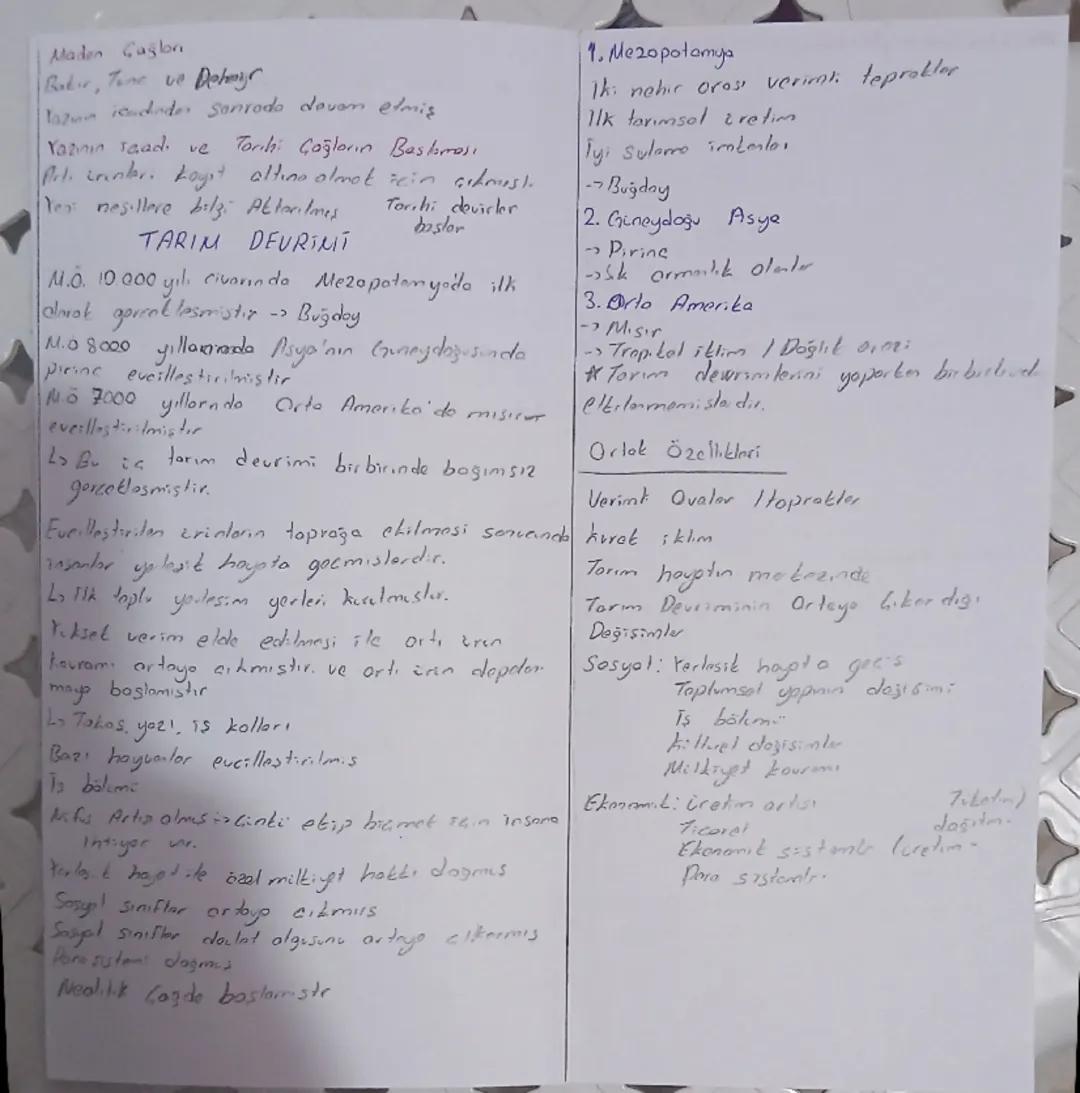 Maden Çağları
Bakır, Tunç ve Demir
Yazının icadından sonrada devam etmiş
Yazının icadı ve Tarihi Çağların Başlaması
Artı ürünleri kayıt altına almak için çıkmıştı.
Yeni nesillere bilgi Aktarılmış Tarihi devirler
başlar
TARIM DEVRİMİ
M.Ö. 10.000 yılı civarında Mezopotamya'da ilk
olarak gerçekleşmiştir -> Buğday
M.Ö 8000 yıllarında Asya'nın Güneydoğusunda
pirinç evcilleştirilmiştir
M.Ö 7000 yıllarında Orta Amerika'da mısır
evcilleştirilmiştir
↳ Bu üç tarım devrimi birbirinde bağımsız
gerçekleşmiştir.
Evcilleştirilen ürünlerin toprağa ekilmesi sonucunda
insanlar yerleşik hayata geçmişlerdir.
↳ İlk toplu yerleşim yerleri kurulmuştur.
Yüksek verim elde edilmesi ile artı ürün
kavramı ortaya çıkmıştır. ve artı ürün depolan
maya başlamıştır
↳ Takas, yazı, iş kolları
Bazı hayvanlar evcilleştirilmiş
İş bölümü
Nüfus Artışı olmuş -> Çünkü ekip biçmek için insana
ihtiyaç var.
Yerleşik hayat ile özel mülkiyet hakkı doğmuş
Sosyal sınıflar ortaya çıkmış
Sosyal sınıflar devlet olgusunu ortaya çıkarmış
Para sistemi doğmuş
Neolitik Çağda başlamıştır
1. Mezopotamya
İki nehir arası verimli topraklar
İlk tarımsal üretim
İyi sulama imkanları
-> Buğday
2. Güneydoğu Asya
-> Pirinç
-> Sık ormanlık alanlar
3. Orta Amerika
-> Mısır
-> Tropikal iklim / Dağlık arazi
* Tarım devrimlerini yaparken birbirlerinden
etkilenmemişlerdir.
Ortak Özellikleri
Verimli Ovalar / topraklar
kurak iklim
Tarım hayatın merkezinde
Tarım Devriminin Ortaya Çıkardığı
Değişimler
Sosyal: Yerleşik hayata geçiş
Toplumsal yapının değişimi
İş bölümü
Kültürel değişimler
Mülkiyet kavramı
Ekonomik: Üretim artışı
Ticaret
Ekonomik sistemler (üretim - Tüketim)
dağıtım.
Para sistemleri